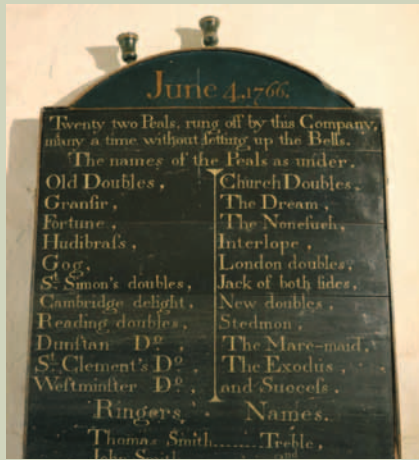 June 4, 1766.
Twenty two Peals, rung off by this Company,
many a time without ſetting up the Bells.
The names of the Peals as under.
Old Doubles,
Granſir,
Fortune,
Hudibraſs,
Gog,
St. Simon's doubles,
Cambridge delight,
Reading doubles,
Dunſtan Do.,
St. Clement's Do.
Weſtminſter Do.,
Church Doubles,
The Dream,
The Noneſuch,
Interlope,
London doubles,
Jack of both ſides,
New doubles,
Stedmon,
The Mare-maid,
The Exodus,
and Succeſs,
Ringers Names.
Thomas Smith........Treble,
John Smith